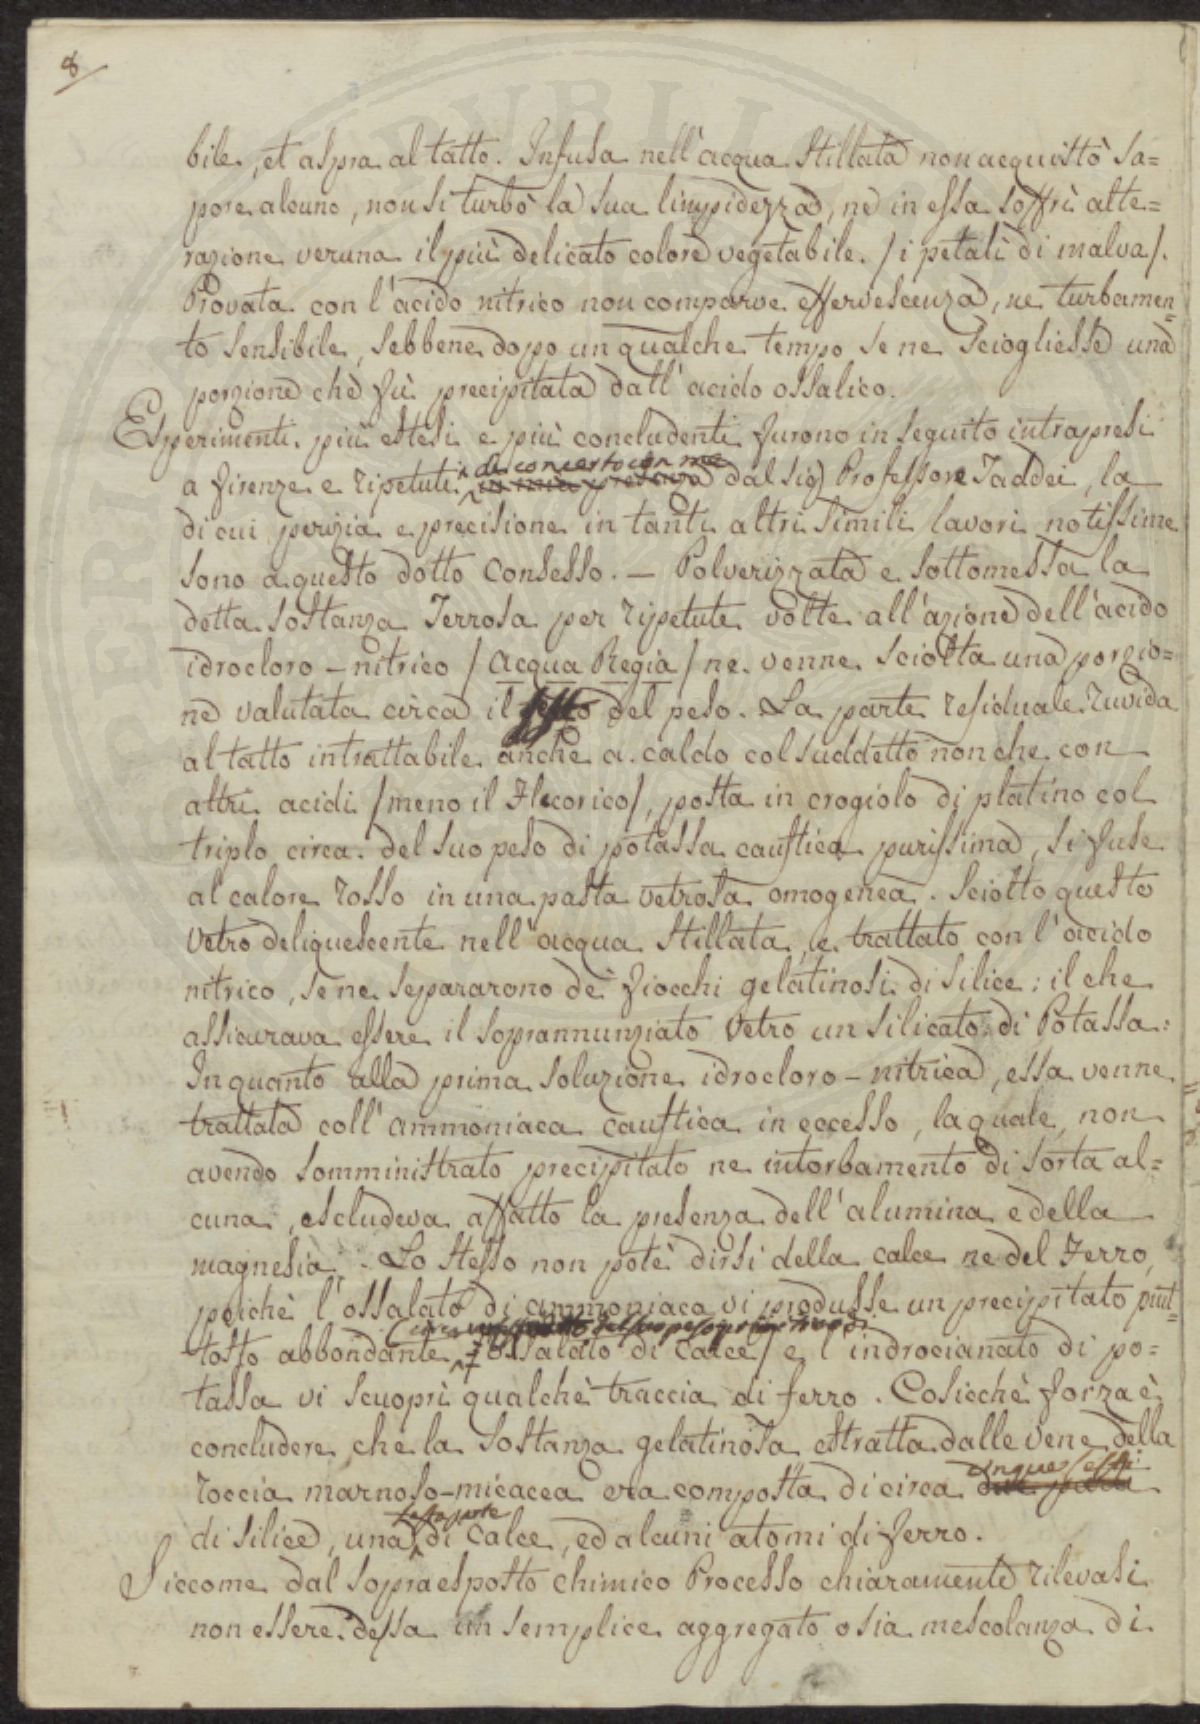 8
bile, et aspra al tatto. Infusa nell'acqua stillata non acquistò sa=
pore alcuno, non si turbò la sua limpidezza, ne in essa soffrì alte=
razione veruna il più delicato colore vegetabile. /i petali di malva/.
Provata con l'acido nitrico non comparve effervescenza, ne turbamen=
to sensibile, sebbene dopo un qualche tempo se ne sciogliesse una
porzione che fù precipitata dall'acido ossalico.
Esperimenti più estesi e più concludenti furono in seguito intrapresi
di concerto con me
a Firenze e ripetuti in mia presenza dal sig Professore Taddei, la
di cui perizia e precisione in tanti altri simili lavori notissime
sono a questo dotto Consesso. — Polverizzata e sottomessa la
detta sostanza Terrosa per ripetute volte all'azione dell'acido
idrocloro-nitrico /Acqua Regia/ ne venne sciolta una porzio=
ne valutata circa il sesto del peso. La parte residuale ruvida
al tatto intrattabile anche a caldo col suddetto non che con
altri acidi /meno il Fluorico/, posta in crogiolo di platino col
triplo circa del suo peso di potassa caustica purissima, si fuse
al calore rosso in una pasta vetrosa omogenea. Sciolto questo
vetro deliquescente nell'acqua stillata, e trattato con l'acido
nitrico, se ne separarono de' fiocchi gelatinosi di silice: il che
assicurava essere il soprannunziato vetro un silicato di Potassa:
In quanto alla prima soluzione idrocloro-nitrica, essa venne
trattata coll'ammoniaca caustica in eccesso, la quale, non
avendo somministrato precipitato ne intorbamento di sorta al=
cuna, escludeva affatto la presenza dell'alumina e della
magnesia. Lo stesso non potè dirsi della calce ne del Ferro,
poichè l'ossalato di ammoniaca vi produsse un precipitato piut=
tosto abbondante /ossalato di calce/ e l'indrocianato di po=
tassa vi scuoprì qualche traccia di ferro. Cosicchè forza è
concludere, che la sostanza gelatinosa estratta dalle vene della
cinque sesti
roccia marnoso-micacea era composta di circa
sesta parte
di silice, una di calce, ed alcuni atomi di ferro.
Siccome dal sopraesposto chimico Processo chiaramente rilevasi
non essere dessa un semplice aggregato o sia mescolanza di